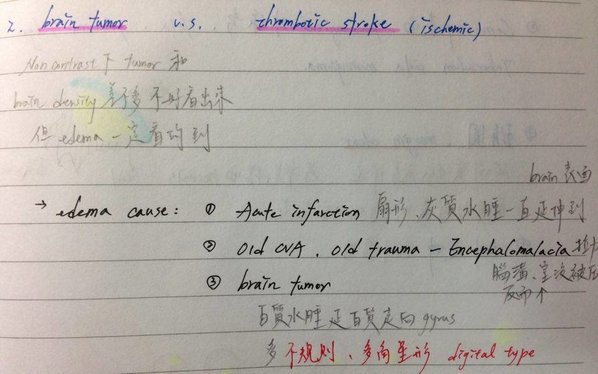 2. brain tumor v.s. thrombotic stroke (ischemic)
Noncontrast 下 tumor 和
brain density 差不多 不好看出來
但 edema 一定看的到
brain 表面
→ edema cause: ① Acute infarction 扇形、灰質水腫一直延伸到
② Old CVA, old trauma - Encephalomalacia
③ brain tumor 腦
反而↑
白質水腫 白質走向 gyrus
多 不規則、多角星形 digital type